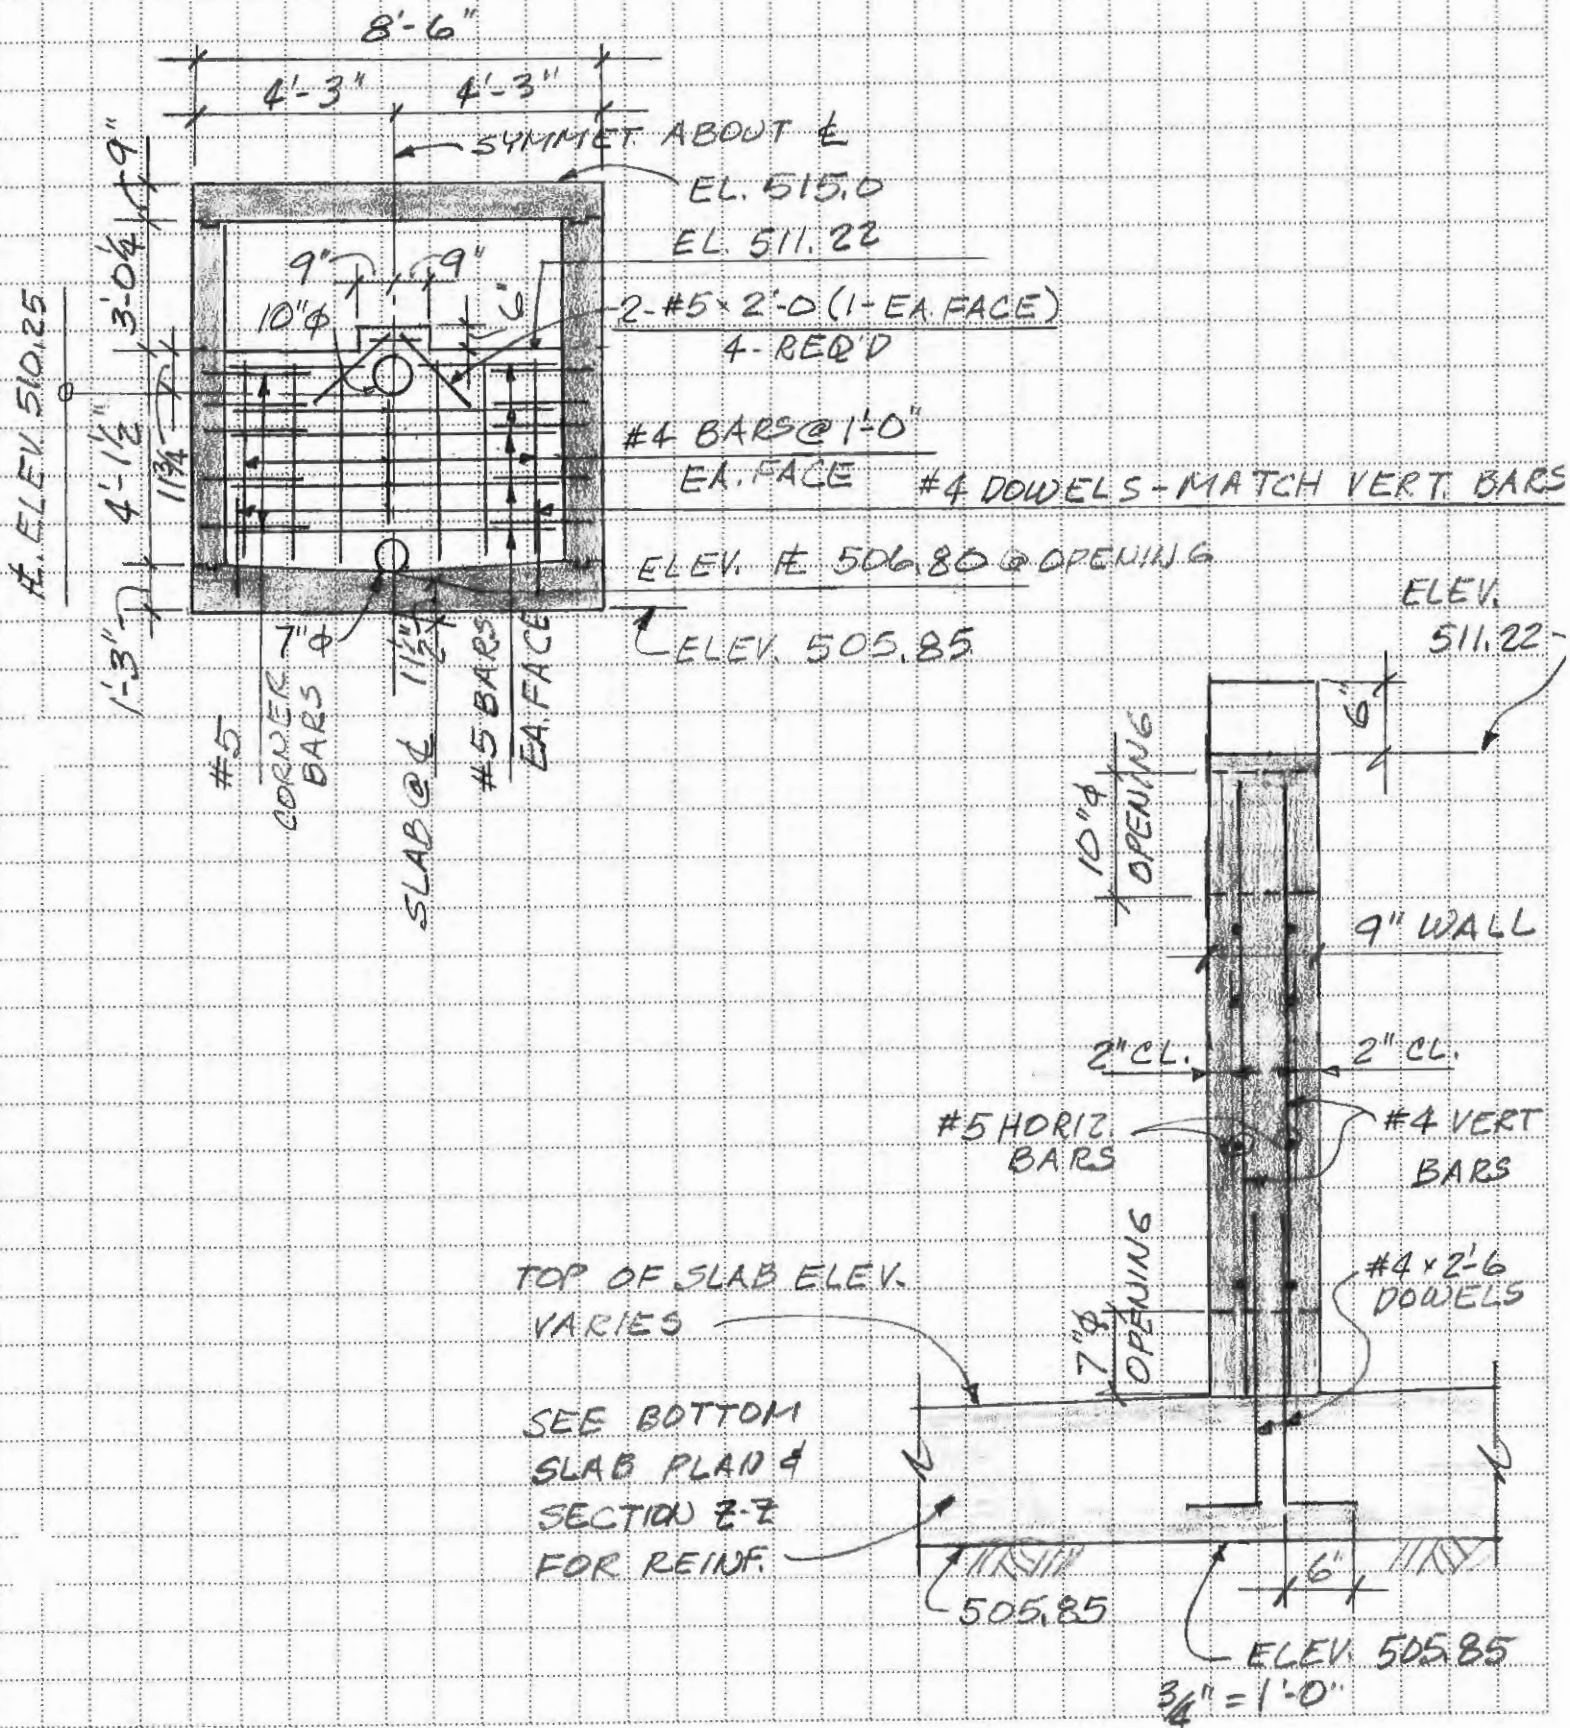 8'-6"
4'-3"
4'-3"
SYMMET. ABOUT ℄
EL. 515.0
EL. 511.22
9"
9"
6"
10"ϕ
2-#5×2'-0 (1-EA. FACE)
4-REQ'D
#4 BARS@1'-0"
EA. FACE
#4 DOWELS-MATCH VERT. BARS
ELEV. ℄ 506.80 @ OPENING
ELEV. 505.85
9"
3'-0¼"
4'-1½"
11¾"
1'-3"
℄ ELEV 510.25
7"ϕ
#5
CORNER
BARS
SLAB @ ℄ 11½"
#5 BARS
EA. FACE
ELEV.
511.22
6"
10"ϕ
OPENING
9" WALL
2" CL.
2" CL.
#5 HORIZ.
BARS
#4 VERT
BARS
#4×2'-6
DOWELS
7"ϕ
OPENING
TOP OF SLAB ELEV.
VARIES
SEE BOTTOM
SLAB PLAN &
SECTION Z-Z
FOR REINF.
505.85
6"
ELEV. 505.85
¾" = 1'-0"